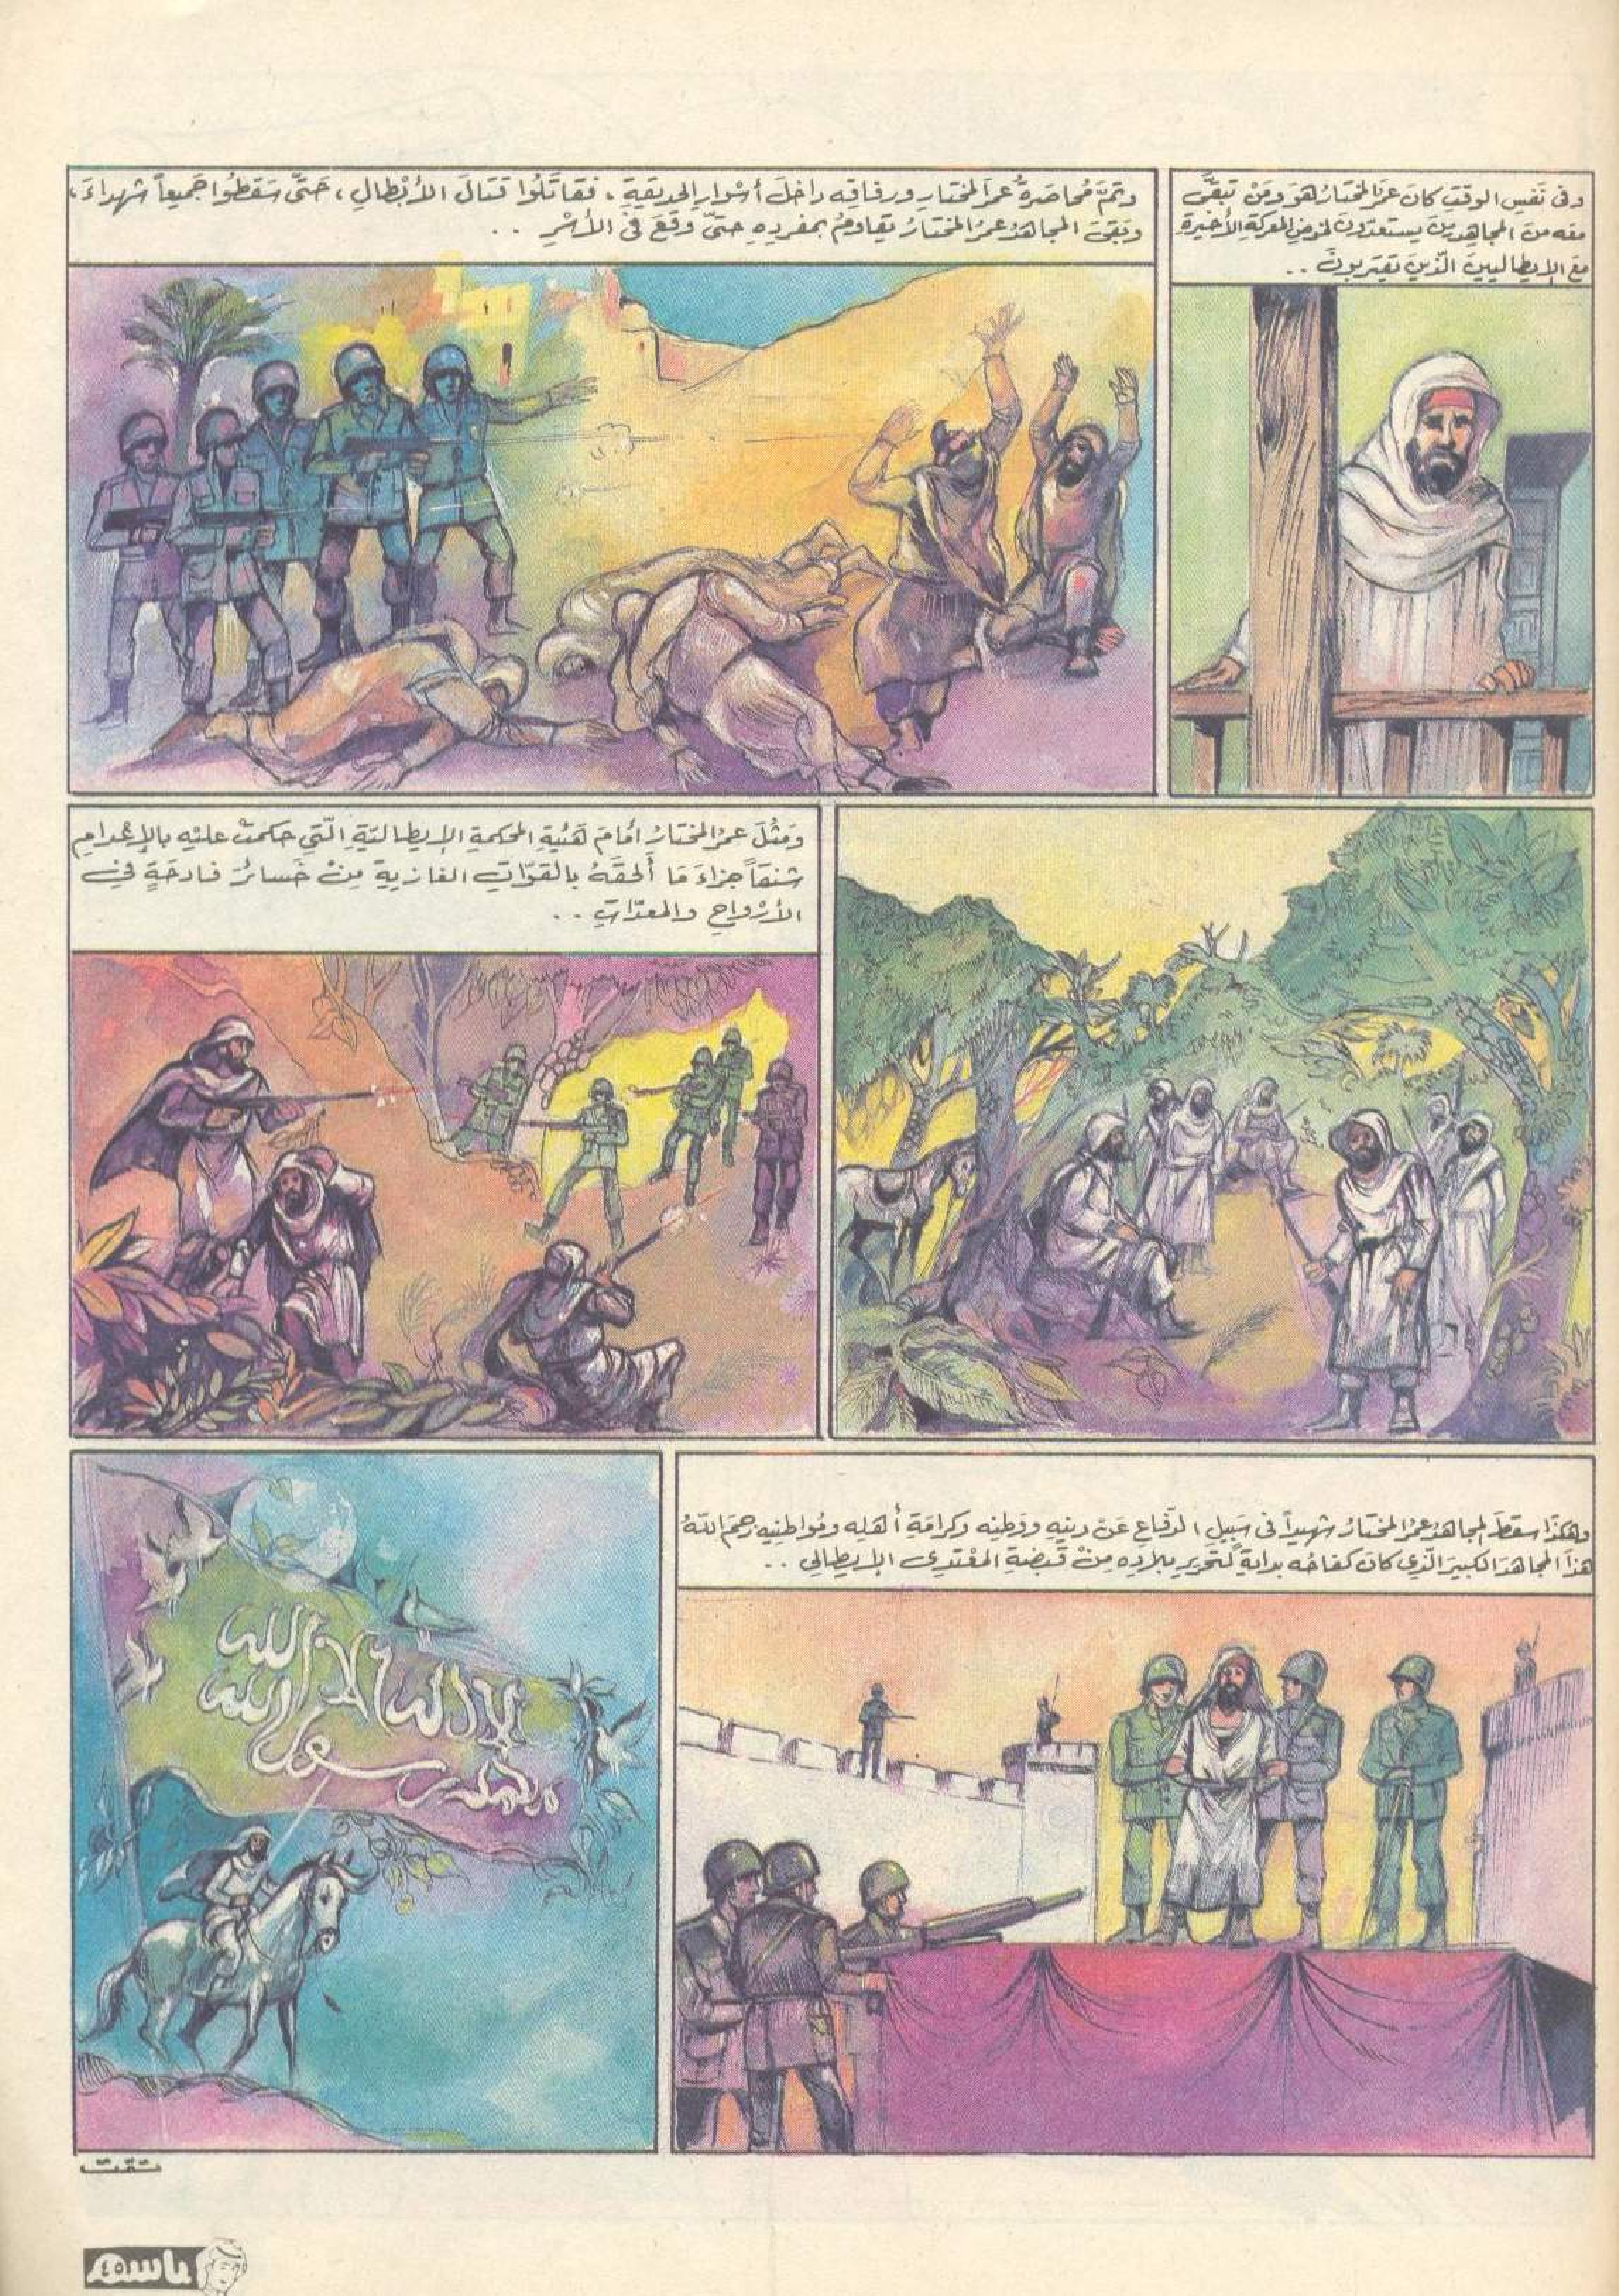 وفى نَفسِ الوقتِ كانَ عمَرُ المختارُ هوَ ومَنْ تبقَّى
معَه منَ المجاهِدِينَ يستعدّونَ لخوضِ المعركةِ الأخيرةِ
معَ الإيطاليينَ الّذينَ يقتربونَ ..
وتمَّ مُحاصَرةُ عمرَ المختارِ ورفاقِه داخلَ أسْوارِ الحديقةِ ، فقاتَلُوا قتالَ الأبْطالِ ، حَتَّى سَقَطُوا جَميعاً شهداءَ ،
وبَقىَ المجاهدُ عمرُ المختارُ يقاومُ بمفردِهِ حتّى وقعَ فى الأسْرِ ..
وَمثُلَ عمرُ المختارُ أمَامَ هَيْئةِ المحكمةِ الإيطاليّةِ الّتي حكمتْ عليْه بالإعْدامِ
شنقاً جزاءَ مَا أَلحقَهُ بالقوّاتِ الغازيةِ مِنْ خَسائرَ فادحَةٍ في
الأرْواحِ والمعدّاتِ ..
وهكذَا سقطَ المجاهدُ عمرُ المختارُ شهيداً فى سَبيلِ الدّفاعِ عَنْ دينِهِ ووَطنِه وكرامَةِ أهلِه ومُواطنِيه رحمَ اللهُ
هذَا المجاهدَ الكبيرَ الّذِى كانَ كفاحُه بدايةً لتحريرِ بلادِه مِنْ قبضَةِ المعْتدِى الإيطالي ..
لا اله الا الله
محمد رسول الله
تمّت
باسم
٤٥